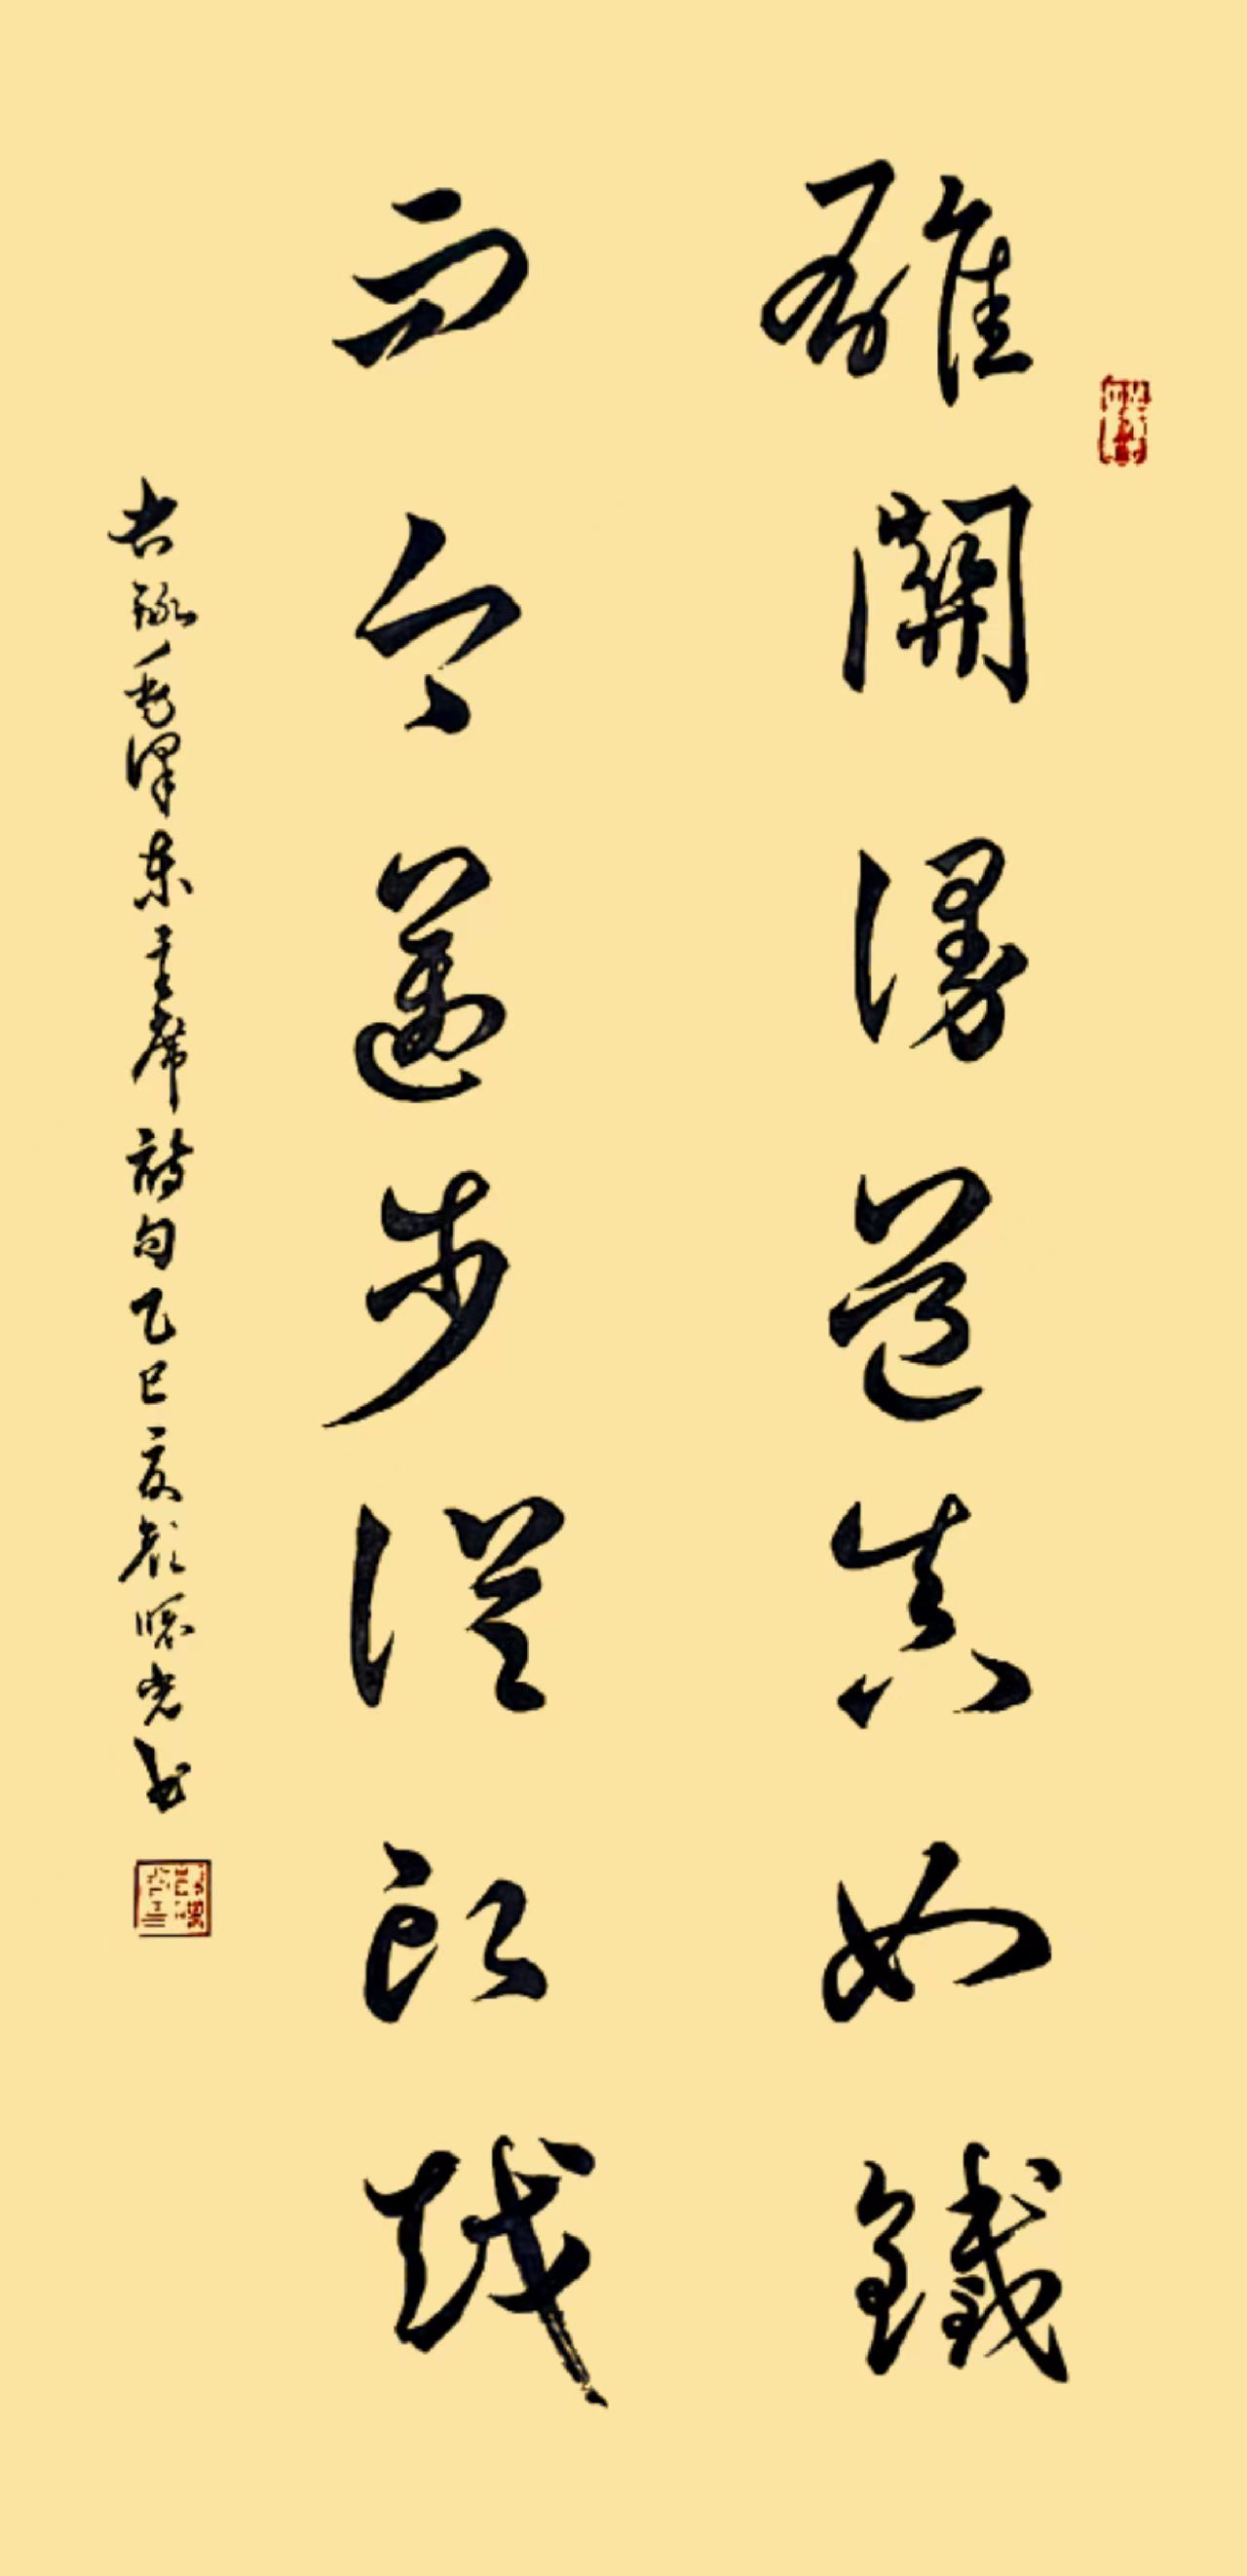 雄關漫道真如鐵
而今邁步從頭越
右錄毛澤東主席詩句乙巳夏曙光书